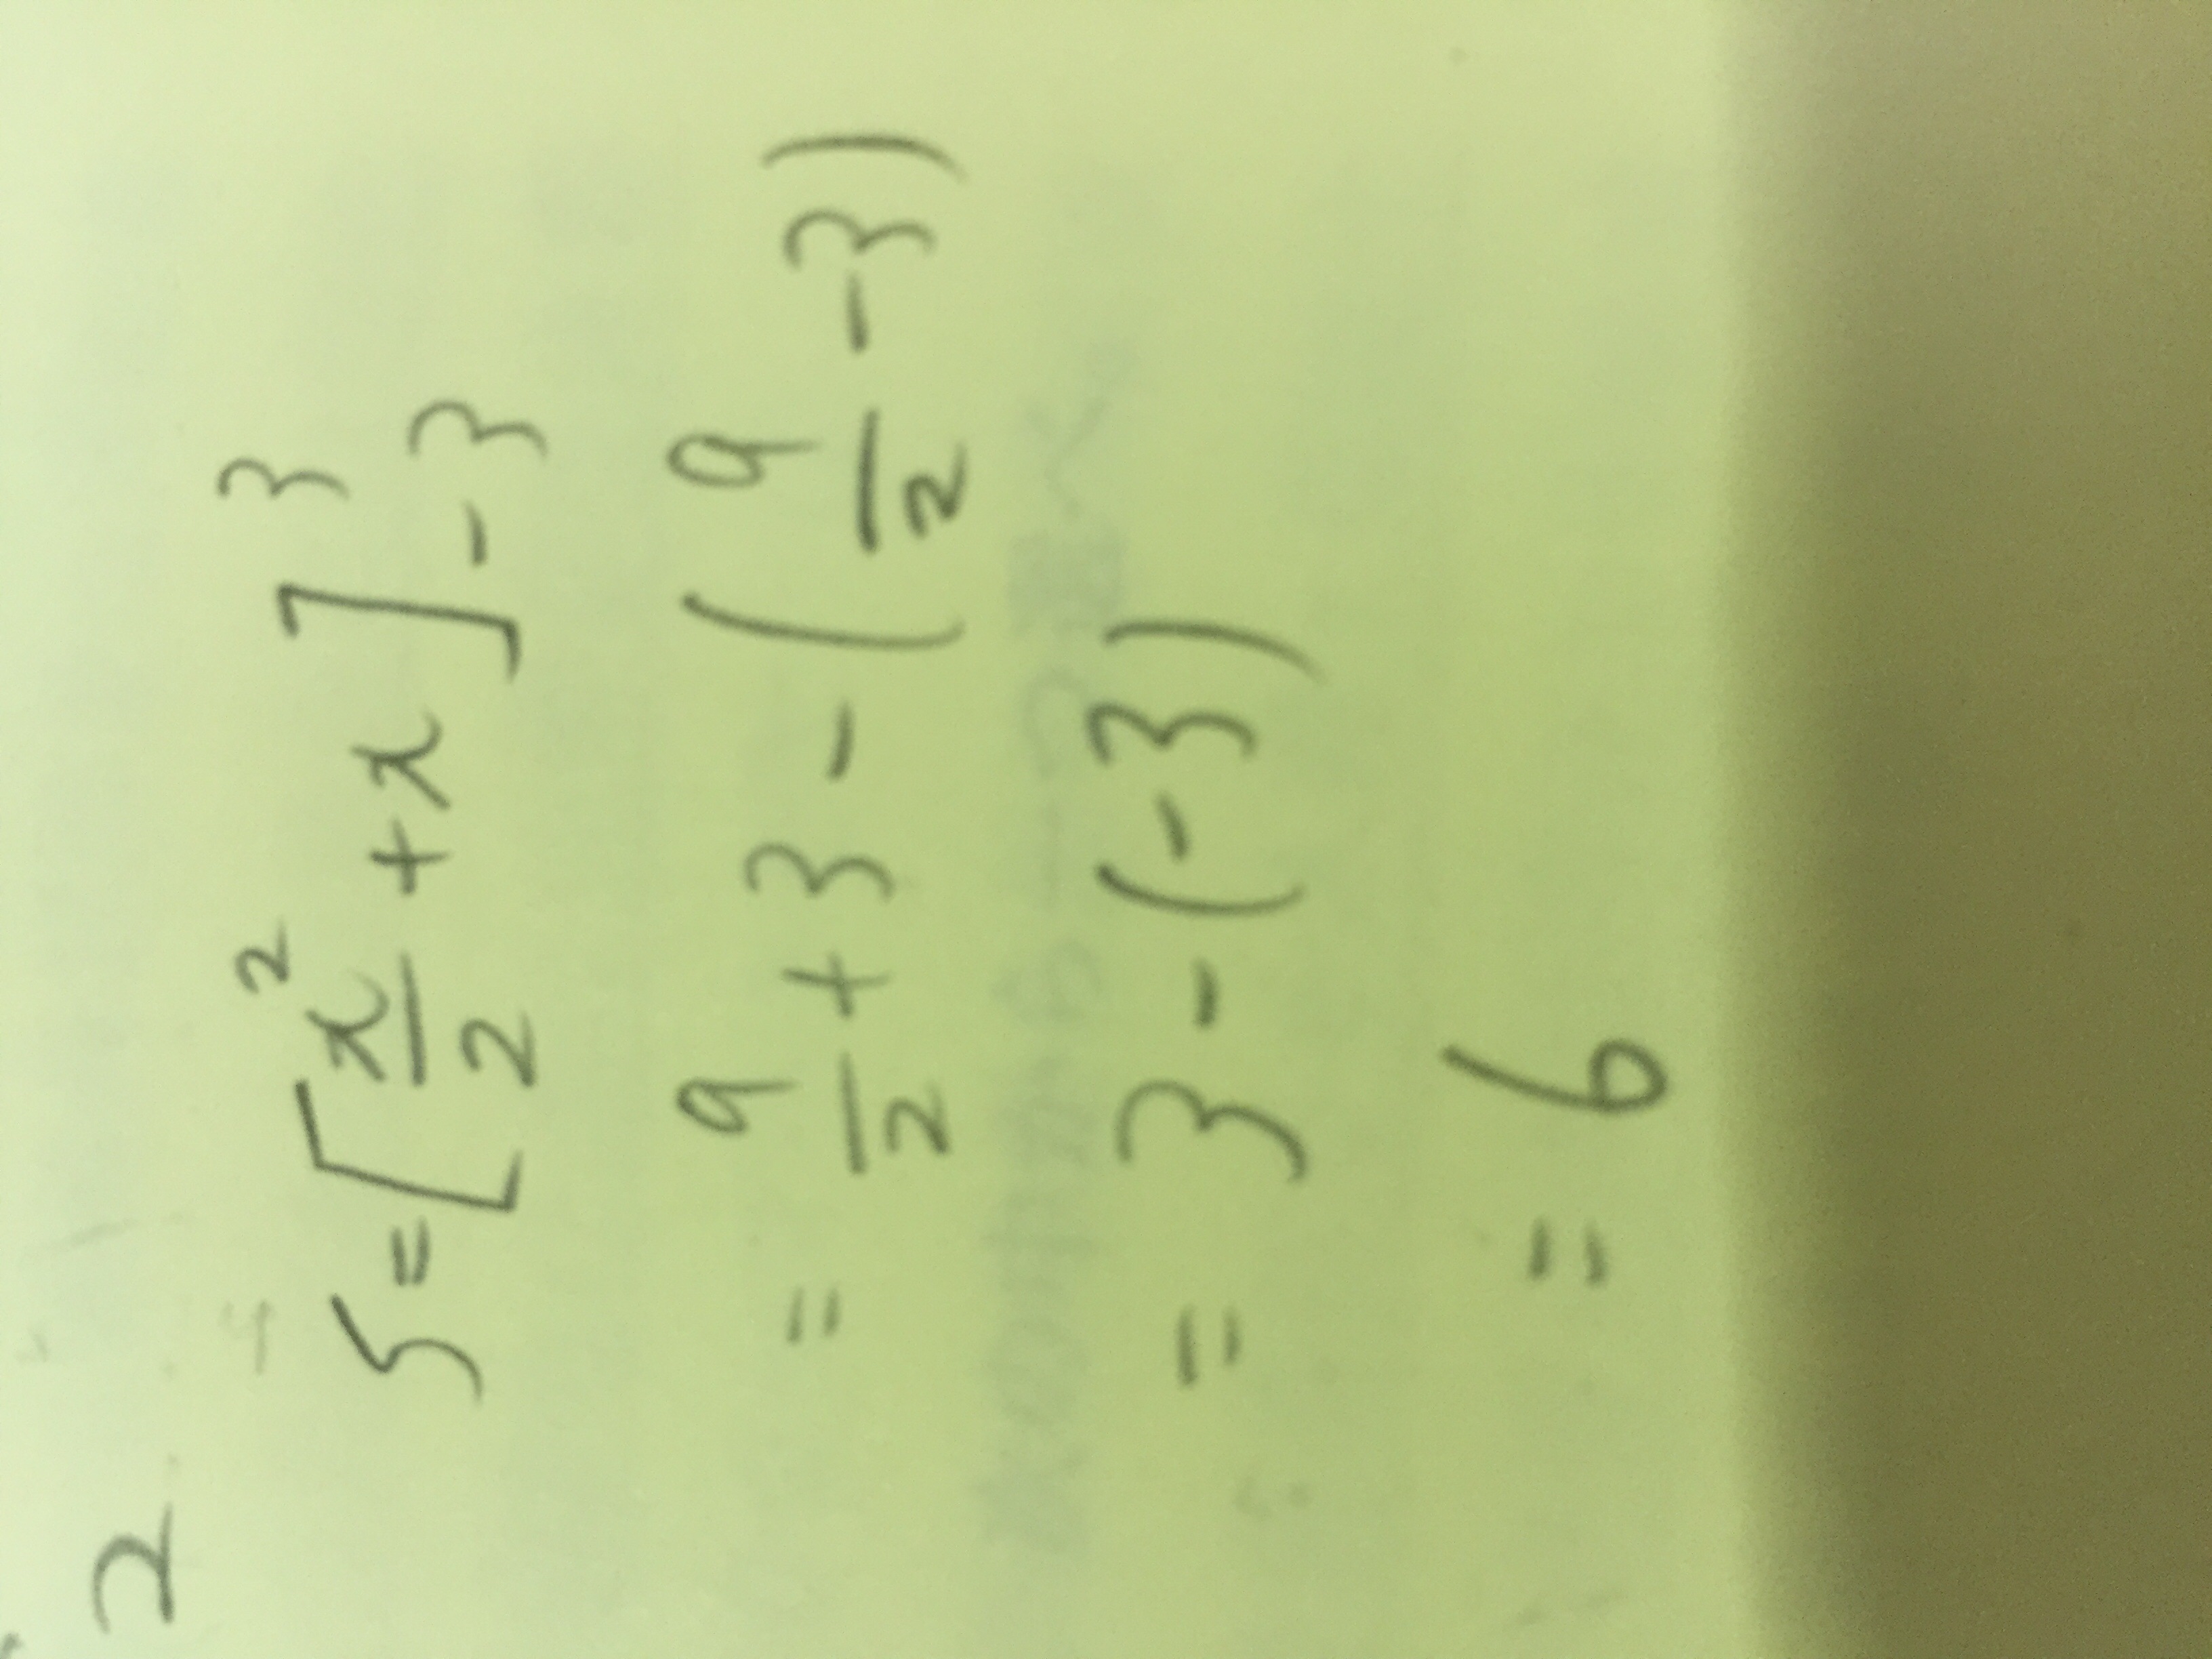 2
S = [x²/2 + x]³₋₃
= 9/2 + 3 - (9/2 - 3)
= 3 - (-3)
= 6